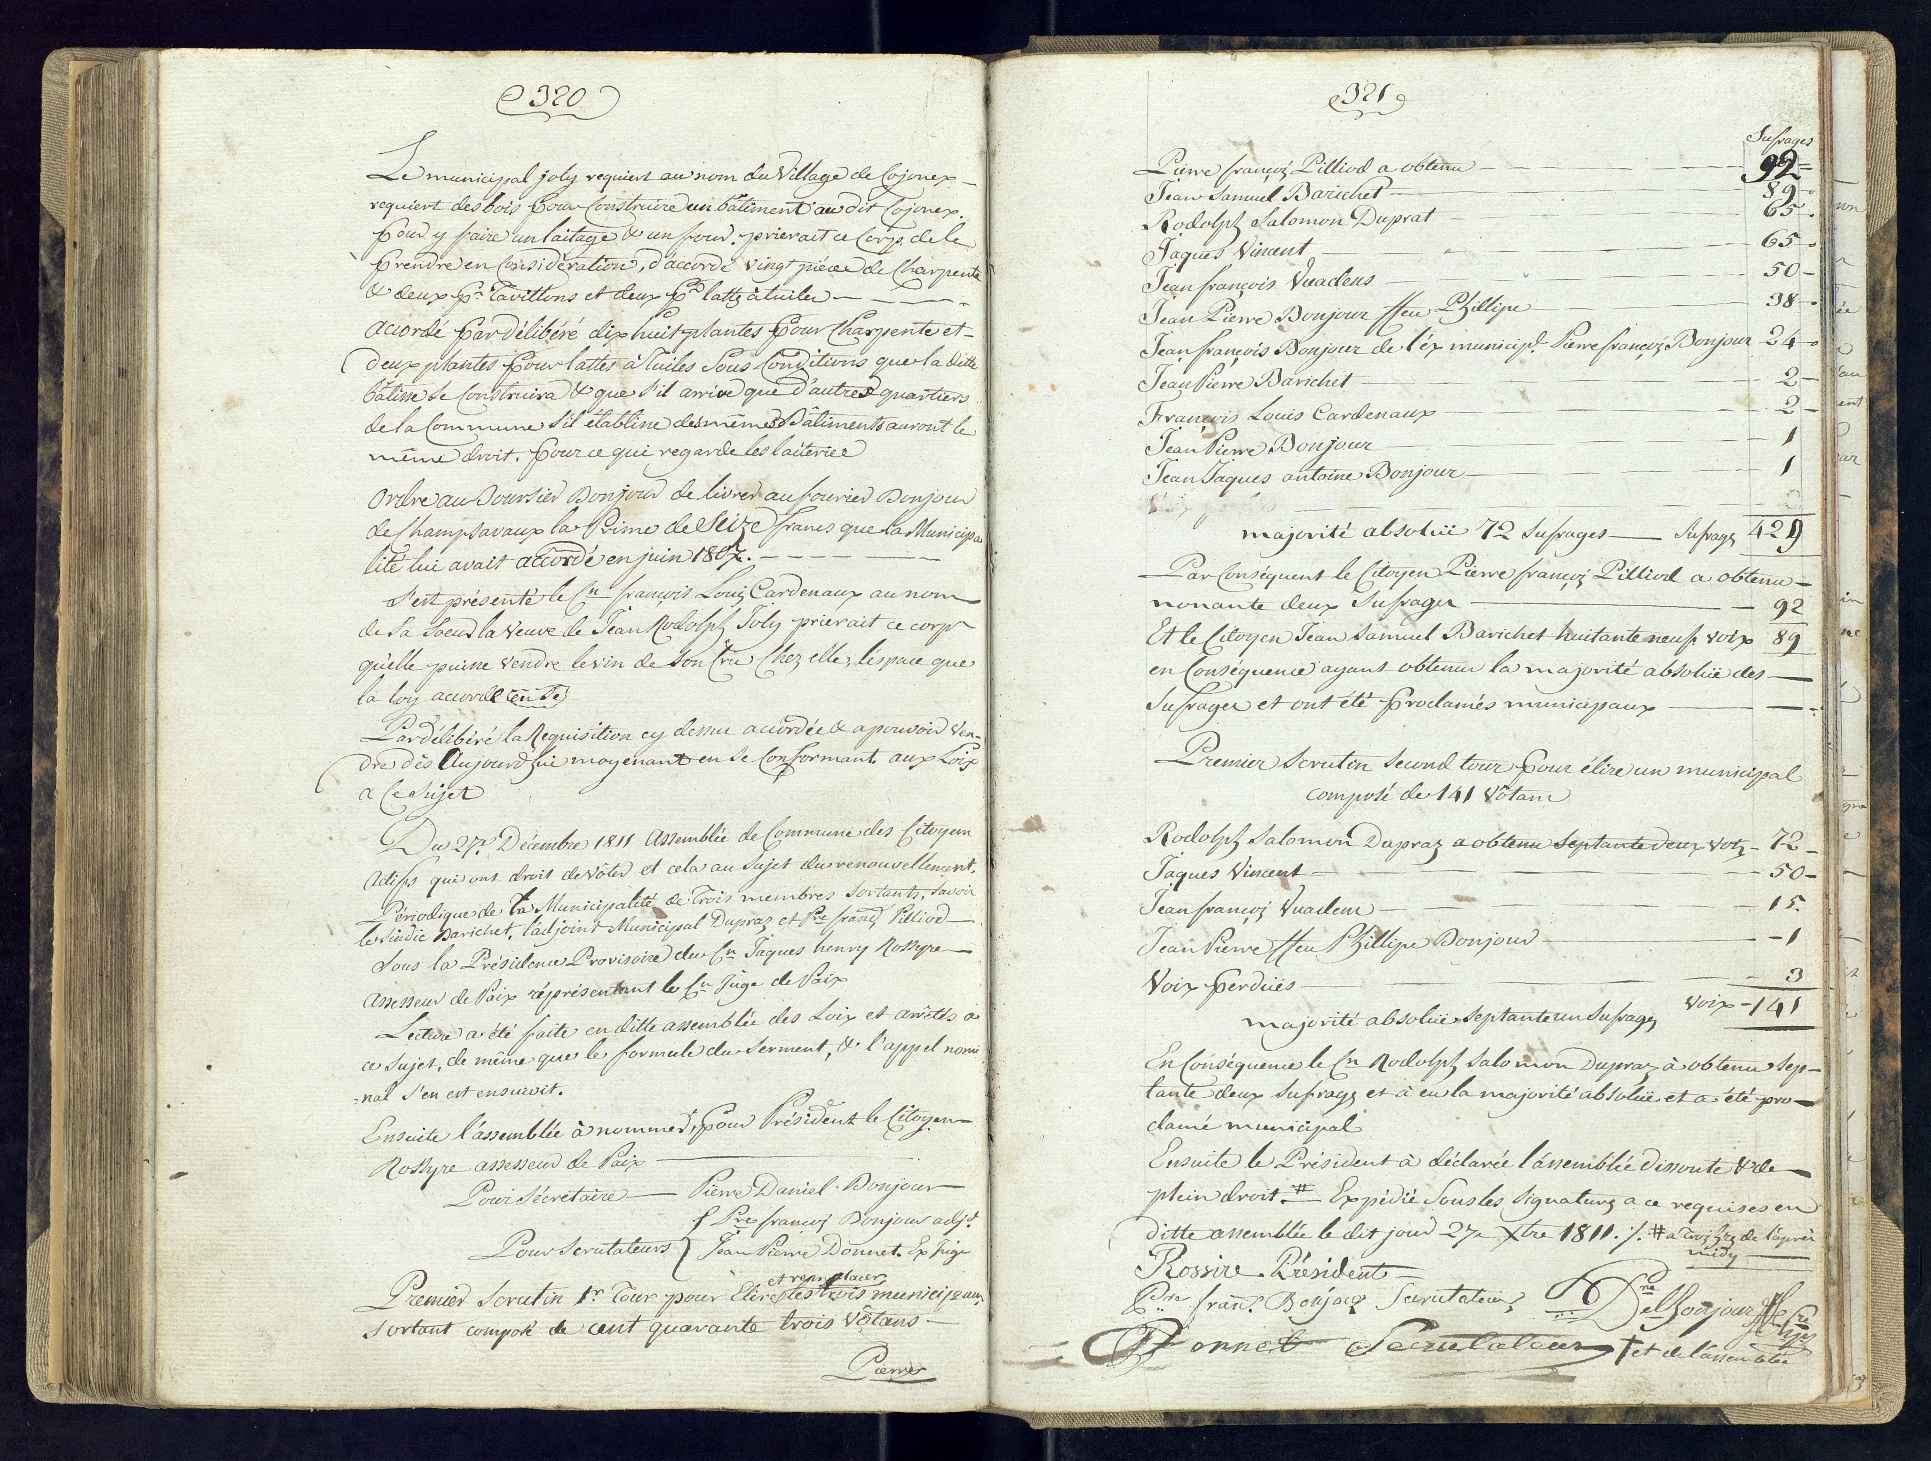 320
Le municipal joly requiert au nom du Village de Cojonex
requiert des bois pour Construire un bâtiment au dit Cojonex.
pour y faire un laitage & un four. prierait ce Corps de le
prendre en Considération, d'accordé vingt pièce de Charpente
& deux pr. Tavillons et deux pr. latte à tuiler
accordé par délibéré dix huit plantes pour Charpente et
deux plantes pour lattes à Tuiles Sous Conditions que la ditte
bâtisse se Construira & que s'il arrive que d'autres quartiers
de la Commune s'il établisse des mêmes Bâtiments auront le
même droit. pour ce qui regarde les laiteries
Ordre au Boursier Bonjour de livrer au fourier Bonjour
de Champsavaux la Prime de Seize francs que la Municipa
lité lui avait accordé en juin 1807.
S'est présenté le Cn. françois Louis Cardenaux au nom
de Sa Soeur la Veuve de Jean Rodolph Joly prierait ce corps
qu'elle puisse vendre le vin de Son Crû Chez elle, l'éspace que
la loy accorde
Par délibéré la Requisition cy dessus accordée & a pouvoir Ven-
dre dès Aujourd'hui moyenant en se Conformant aux Loix
a Ce Sujet
Du 27e. Décembre 1811 Assemblée de Commune des Citoyens
Actifs qui ont droit de Vôter et cela au Sujet du renouvellement
Périodique de la Municipalité de Trois membres Sortants, Savoir
le Sindic Barichet, l'adjoint Municipal Dupraz et Pre franç. Pilliod
Sous la Présidence Provisoire du Cn Jaques henry Rossyre
Assesseur de Paix réprésentant le Cn Juge de Paix
Lecture a été faite en ditte assemblée des Loix et arrêtés a
ce Sujet, de même que le formule du Serment, & l'appel nomi
-nal s'en est ensuivit.
Ensuite l'assemblée à nommer, pour Président le Citoyen
Rossyre assesseur de Paix
Pour Sécrétaire — Pierre Daniel Bonjour
Pre françoi Bonjour adjt.
Pour Scrutateurs { Jean Pierre Donnet. Ex Juge
et remplacer
Premier Scrutin 1r. Tour pour Elire les trois municipaux
Sortant composé de cent quarante trois Vôtans
Pierre
321
Sufrages
Pierre françoi Pilliod a obtenu — 92
Jean Samuel Barichet — 89
Rodolph Salomon Duprat — 65
Jaques Vincent — 65
Jean françois Vuadens — 50
Jean Pierre Bonjour ffeu Phillipe — 38
Jean françois Bonjour de l'éx municipl. Pierre françoi Bonjour 24
Jean Pierre Barichet — 2
François Louis Cardenaux — 2
Jean Pierre Bonjour — 1
Jean Jaques antoine Bonjour — 1
majorité absolüe 72 Sufrages — Sufrages 429
Par Conséquent le Citoyen Pierre françoi Pilliod a obtenu
nonante deux Sufrages — 92
Et le Citoyen Jean Samuel Barichet huitante neuf voix 89
en Conséquence ayant obtenu la majorité absolüe des
Sufrages et ont été proclamés municipaux
Premier Scrutin Second tour pour élire un municipal
composé de 141 Vôtans
Rodolph Salomon Dupraz a obtenu Septante deux Voix — 72
Jaques Vincent — 50
Jean françoi Vuadens — 15.
Jean Pierre ffeu Phillipe Bonjour — 1
Voix perdües — 3
Voix — 141
majorité absolüe Septante un Sufrages
En Conséquence le Cn Rodolph Salomon Dupraz à obtenu Sep-
tante deux Sufrages et à eu la majorité absolüe et a été pro-
clamé municipal
Ensuite le Président à déclarée l'assemblée dissoute & de
plein droit. # Expédié Sous les Signatures a ce requises en
ditte assemblée le dit jour 27e Xbre 1811. ·/. # a Trois hres de l'après
midy
Rossire. Président
Pre franç. Bonjour Scrutateur
Pre Del Bonjour
Donnet Scrutateur † et de l'assemblée